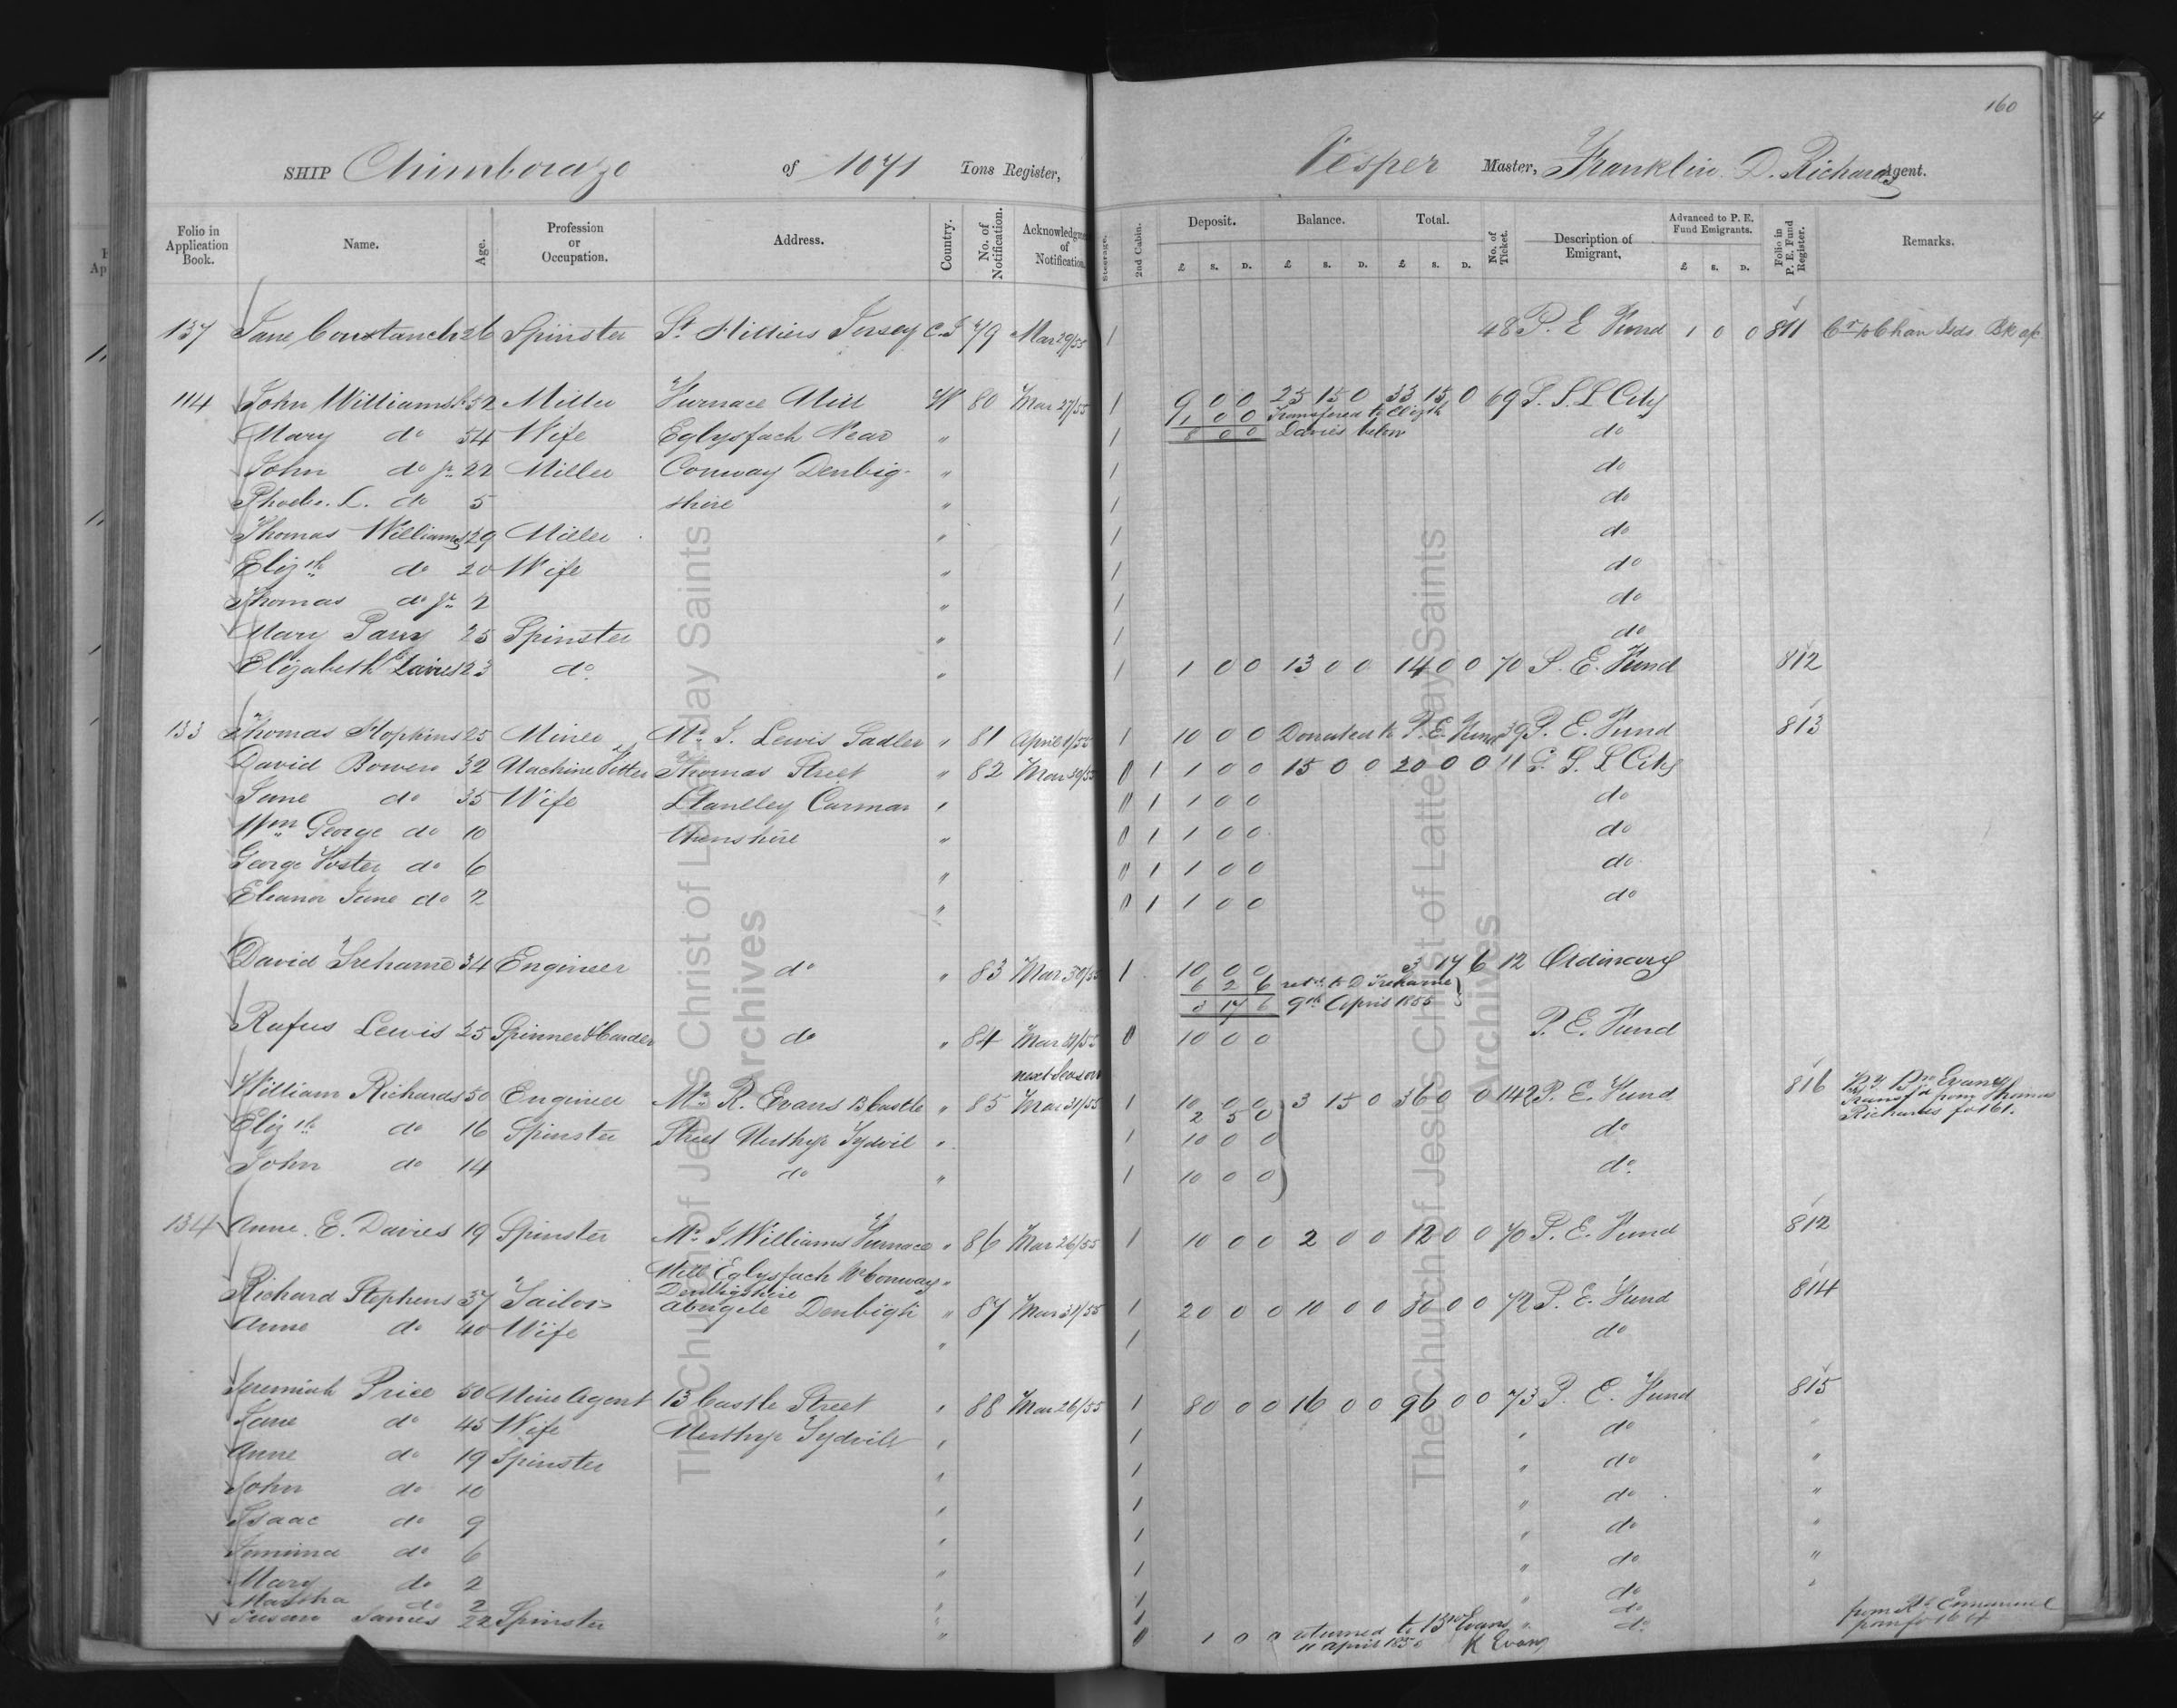 160
SHIP Chimborazo of 1071 Tons Register, Vesper Master, Franklin D. Richards Agent.
Folio in Application Book. Name. Age. Profession or Occupation. Address. Country. No. of Notification. Acknowledgme of Notification. Steerage. 2nd Cabin. Deposit. £ s. D. Balance. £ s. D. Total. £ s. D. No. of Ticket. Description of Emigrant. Advanced to P. E. Fund Emigrants. £ s. D. Folio in P. E. Fund Register. Remarks.
137 Jane Constanch 26 Spinster St Hilliers Jersey C.I 79 Mar 29/55 1 48 P. E Fund 1 0 0 811 Chan Isds Bk a/c
114 John Williams 52 Miller Furnace Mill W 80 Mar 27/55 1 9 0 0 25 15 0 33 15 0 69 S. S. L City
1 0 0 Transfered to Elizth
Mary do 54 Wife Eglysfach Near " 1 8 0 0 Davies below do
John do Jr 22 Miller Conway Denbig- " 1 do
Phoebe. L. do 5 shire " 1 do
Thomas Williams 29 Miller " 1 do
Elizth do 20 Wife " 1 do
Thomas do Jr 2 " 1 do
Mary Parry 25 Spinster " 1 do
Elizabeth Davies 23 do " 1 1 0 0 13 0 0 14 0 0 70 P. E. Fund 812
133 Thomas Hopkins 25 Miner Mr J. Lewis Sadler " 81 April 1/55 1 10 0 0 Donated to P. E. Fund 39 P. E. Fund 813
David Bowen 32 Machine Fitter Thomas Street " 82 Mar 30/55 0 1 1 0 0 15 0 0 20 0 0 11 S. S. L City
Jane do 35 Wife Llanelley Carmar " 0 1 1 0 0 do
Wm George do 10 thenshire " 0 1 1 0 0 do
George Foster do 6 " 0 1 1 0 0 do
Eleanor Jane do 2 " 0 1 1 0 0 do
David Treharne 34 Engineer do " 83 Mar 30/55 1 10 0 0 3 17 6 12 Ordinary
6 2 6 retd to D Treharne
3 17 6 9th April 1855
Rufus Lewis 25 Spinner & Carder do " 84 Mar 31/55 0 10 0 0 P. E. Fund
next Season
William Richards 50 Engineer Mr R. Evans 13 Castle " 85 Mar 31/55 1 10 0 0 3 15 0 36 0 0 142 P. E. Fund 816 By Dn Evans
2 5 0 Transfd from Thomas
Elizth do 16 Spinster Street Merthyr Tydvil " 1 10 0 0 do Richards fo 161.
John do 14 do " 1 10 0 0 do
134 Anne. E. Davies 19 Spinster Mr J Williams Furnace " 86 Mar 26/55 1 10 0 0 2 0 0 12 0 0 70 P. E. Fund 812
Mill Eglysfach Nr Conway "
Denbigshire
Richard Stephens 37 Tailor Abergele Denbigh " 87 Mar 31/55 1 20 0 0 10 0 0 30 0 0 72 P. E. Fund 814
Anne do 40 Wife " 1 do
Jeremiah Price 50 Mine Agent 13 Castle Street " 88 Mar 26/55 1 80 0 0 16 0 0 96 0 0 73 P. E. Fund 815
Jane do 45 Wife Merthyr Tydvil " 1 " do "
Anne do 19 Spinster " 1 " do "
John do 10 " 1 " do "
Isaac do 9 " 1 " do "
Jemima do 6 " 1 " do "
Mary do 2 " 1 " do "
Martha do 2 " 1 do
Susan James 22 Spinster " 0 1 0 0 returned to Evans " do
11 April 1855 Evans